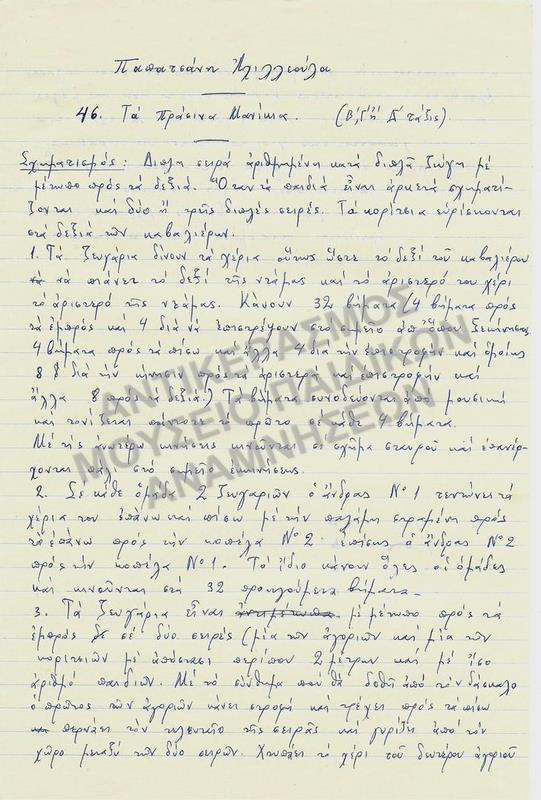 Παπατσάνη Αχιλλεούλα
46. Τά Πράσινα Μανίκια. (Β', Γ' ἤ Δ' τάξις).
Σχηματισμός: Διπλή σειρά ἀριθμημένη κατά διπλᾶ ζεύγη μέ
μέτωπο πρός τά δεξιά. Ὅταν τά παιδιά εἶναι ἀρκετά σχηματί-
ζονται καί δύο ἤ τρεῖς διπλές σειρές. Τά κορίτσια εὑρίσκονται
στά δεξιά τῶν καβαλιέρων.
1. Τά ζευγάρια δίνουν τά χέρια οὕτως ὥστε τό δεξί τοῦ καβαλιέρου
νά πιάνει τό δεξί τῆς ντάμας καί τό ἀριστερό του χέρι
τό ἀριστερό τῆς ντάμας. Κάνουν 32 βήματα (4 βήματα πρός
τά ἐμπρός καί 4 διά νά ἐπιστρέψουν στό σημεῖο ἀπ' ὅπου ξεκίνησαν
4 βήματα πρός τά πίσω καί ἄλλα 4 διά τήν ἐπιστροφήν καί ὁμοίως
8 διά τήν κίνησιν πρός τά ἀριστερά καί ἐπιστροφήν καί
ἄλλα 8 πρός τά δεξιά.) Τά βήματα συνοδεύονται ἀπό μουσική
καί τονίζεται πάντοτε τό πρῶτο σέ κάθε 4 βήματα.
Μέ τῆς ἀνωτέρω κινήσεις κινοῦνται σέ σχῆμα σταυροῦ καί ἐπανέρ-
χονται πάλι στό σημεῖο ἐκκινήσεως.
2. Σέ κάθε ὁμάδα 2 ζευγαριῶν ὁ ἄνδρας Νο 1 τεντώνει τά
χέρια του ἐπάνω καί πίσω μέ τήν παλάμη στραμένη πρός
τά ἐπάνω πρός τήν κοπέλα Νο 2 ἐπίσης ὁ ἄνδρας Νο 2
πρός τήν κοπέλα Νο 1. Τό ἴδιο κάνουν ὅλες οἱ ὁμάδες
καί κινοῦνται στά 32 προηγούμενα βήματα.
3. Τά ζευγάρια εἶναι ἀντιμέτωπα μέ μέτωπο πρός τά
ἐμπρός σέ δύο σειρές (μία τῶν ἀγοριῶν καί μία τῶν
κοριτσιῶν μέ ἀπόσταση περίπου 2 μέτρων καί μέ ἴσο
ἀριθμό παιδιῶν. Μέ τό σύνθημα πού θά δοθῆ ἀπό τόν δάσκαλο
ὁ πρῶτος τῶν ἀγοριῶν κάνει στροφή καί τρέχει πρός τά πίσω
περνάει τόν τελευταῖο τῆς σειρᾶς καί γυρίζει ἀπό τόν
χῶρο μεταξύ τῶν δύο σειρῶν. Χτυπάει τό χέρι τοῦ δευτέρου ἀγοριοῦ
ΑΝΤΙΚΕΡΑΣΜΟΣ
ΜΟΥΣΕΙΟ ΠΑΙΔΙΚΩΝ
ΑΝΑΜΝΗΣΕΩΝ